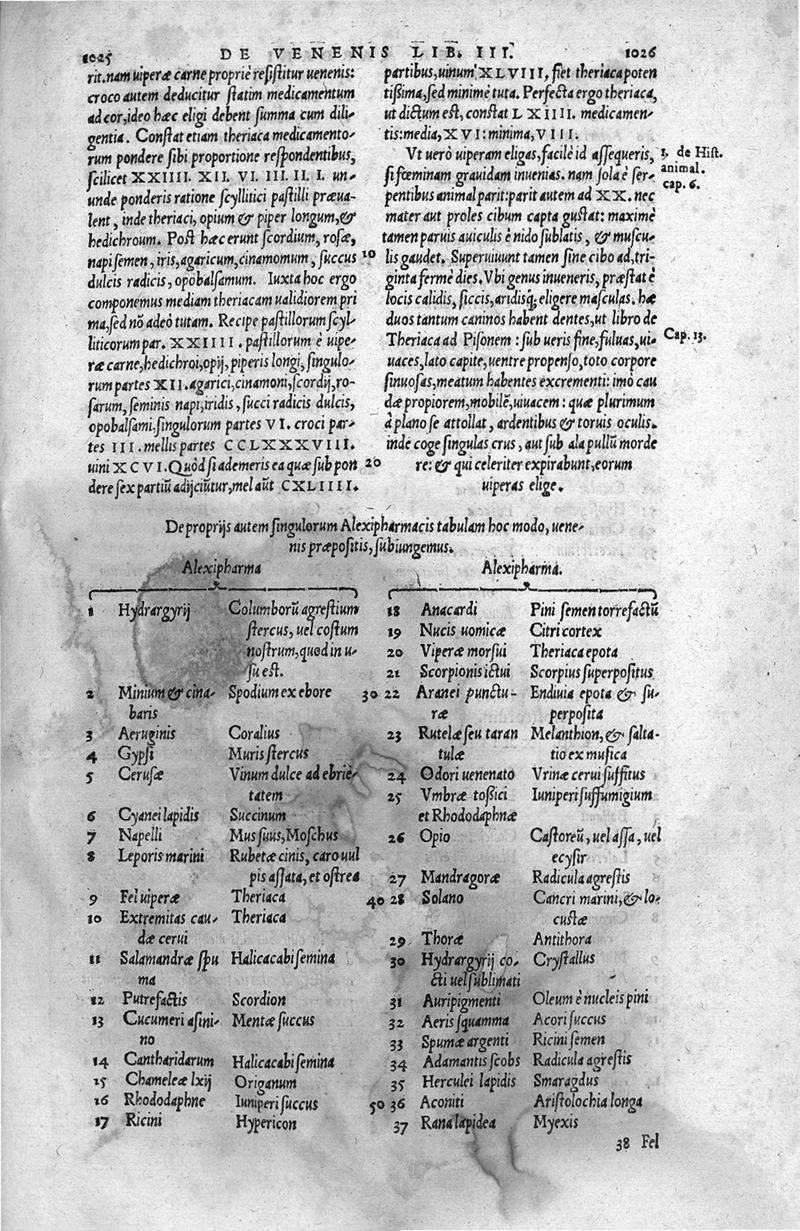 1025 DE VENENIS LIB. III. 1026
rit. nam uiperæ carne propriè resistitur uenenis:
croco autem deducitur statim medicamentum
ad cor, ideo hæc eligi debent summa cum dili-
gentia. Constat etiam theriaca medicamento-
rum pondere sibi proportione respondentibus,
scilicet XXIIII. XII. VI. III. II. I. un-
unde ponderis ratione scyllitici pastilli præua-
lent, inde theriaci, opium & piper longum, &
hedichroum. Post hæc erunt scordium, rosæ,
napi semen, iris, agaricum, cinamomum, succus 10
dulcis radicis, opobalsamum. Iuxta hoc ergo
componemus mediam theriacam ualidiorem pri
ma, sed nõ adeò tutam. Recipe pastillorum scyl-
liticorum par. XXIIII. pastillorum è uipe-
ræ carne, hedichroi, opij, piperis longi, singulo-
rum partes XII. agarici, cinamoni, scordij, ro-
sarum, seminis napi, iridis, succi radicis dulcis,
opobalsami. singulorum partes VI. croci par-
tes III. mellis partes CCLXXXVIII.
uini XCVI. Quòd si ademeris ea quæ sub pon 20
dere sex partiũ adijciũtur, mel aũt CXLIIII.
partibus, uinum XLVIII, fiet theriaca poten
tißima, sed minimè tuta. Perfecta ergo theriaca,
ut dictum est, constat LXIIII. medicamen-
tis: media, XVI: minima, VIII.
Vt uerò uiperam eligas, facilè id assequeris,
si fœminam grauidam inuenias. nam sola è ser-
pentibus animal parit: parit autem ad XX. nec
mater aut proles cibum capta gustat: maximè
tamen paruis auiculis è nido sublatis, & muscu-
lis gaudet. Superuiuunt tamen sine cibo ad, tri-
ginta fermè dies. Vbi genus inueneris, præstat è
locis calidis, siccis, aridisq́, eligere masculas. hæ
duos tantum caninos habent dentes, ut libro de
Theriaca ad Pisonem: sub ueris fine, fuluas, ui-
uaces, lato capite, uentre propenso, toto corpore
sinuosas, meatum habentes excrementi: imò cau
dæ propiorem, mobilẽ, uiuacem: quæ plurimum
à plano se attollat, ardentibus & toruis oculis.
inde coge singulas crus, aut sub ala pullũ morde
re: & qui celeriter expirabunt, eorum
uiperas elige.
3. de Hist.
animal.
cap. 6.
Cap. 13.
De proprijs autem singulorum Alexipharmacis tabulam hoc modo, uene-
nis præpositis, subiungemus.
Alexipharma
1 Hydrargyrij Columborũ agrestium
stercus, uel costum
nostrum, quod in u-
su est.
2 Minium & cina- Spodium ex ebore 30
baris
3 Aeruginis Coralius
4 Gypsi Muris stercus
5 Cerusæ Vinum dulce ad ebriè-
tatem
6 Cyanei lapidis Succinum
7 Napelli Mus suus, Moschus
8 Leporis marini Rubetæ cinis, caro uul
pis assata, et ostrea
9 Fel uiperæ Theriaca 40
10 Extremitas cau- Theriaca
dæ cerui
11 Salamandræ spu Halicacabi semina
ma
12 Putrefactis Scordion
13 Cucumeri asini- Mentæ succus
no
14 Cantharidarum Halicacabi semina
15 Chameleæ lxij Origanum
16 Rhododaphne Iuniperi succus 50
17 Ricini Hypericon
Alexipharma.
18 Anacardi Pini semen torrefactũ
19 Nucis uomicæ Citri cortex
20 Viperæ morsui Theriaca epota
21 Scorpionis ictui Scorpius superpositus
22 Aranei punctu- Endiuia epota & su-
ræ perposita
23 Rutelæ seu taran Melanthion, & salta-
tulæ tio ex musica
24 Odori uenenato Vrinæ cerui suffitus
25 Vmbræ toßici Iuniperi suffumigium
et Rhododaphnæ
26 Opio Castoreũ, uel assa, uel
ecysir
27 Mandragoræ Radicula agrestis
28 Solano Cancri marini, & lo-
custæ
29 Thoræ Antithora
30 Hydrargyrij co- Crystallus
cti uel sublimati
31 Auripigmenti Oleum è nucleis pini
32 Aeris squamma Acori succus
33 Spumæ argenti Ricini semen
34 Adamantis scobs Radicula agrestis
35 Herculei lapidis Smaragdus
36 Aconiti Aristolochia longa
37 Rana lapidea Myexis
38 Fel